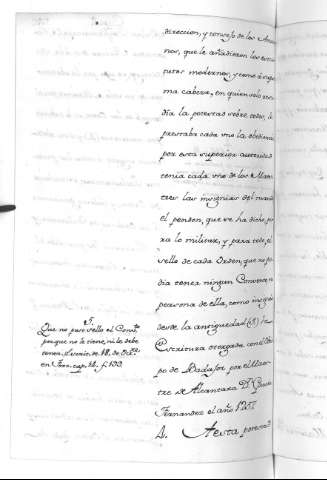 direccion, y consejo de los Ancia
nos, que le añadieron los escri
tores modernos, y como á supre
ma cabeza, en quien solo resi
día la potestad sobre todos, le
prestaba cada uno la obediencia
por esta superior autoridad
tenia cada uno de los Maes
tres las insignias del mando
el pendon, que se ha dicho, pa
ra lo militar, y para todo, el
sello de cada Orden, que no po
dia tener ningun Convento, ni
persona de ella, como
desde la antigüedad (T) la
Escritura otorgada con el Obis
po de Badajoz por el Maes
tre de Alcantara Dn. Garci
Fernandez el año 1257
A esta potestad
T.
Que no puso sello el Convto.
porque no le tiene, ni le debe
tener.
en Torr. cap. 14. f. 100.